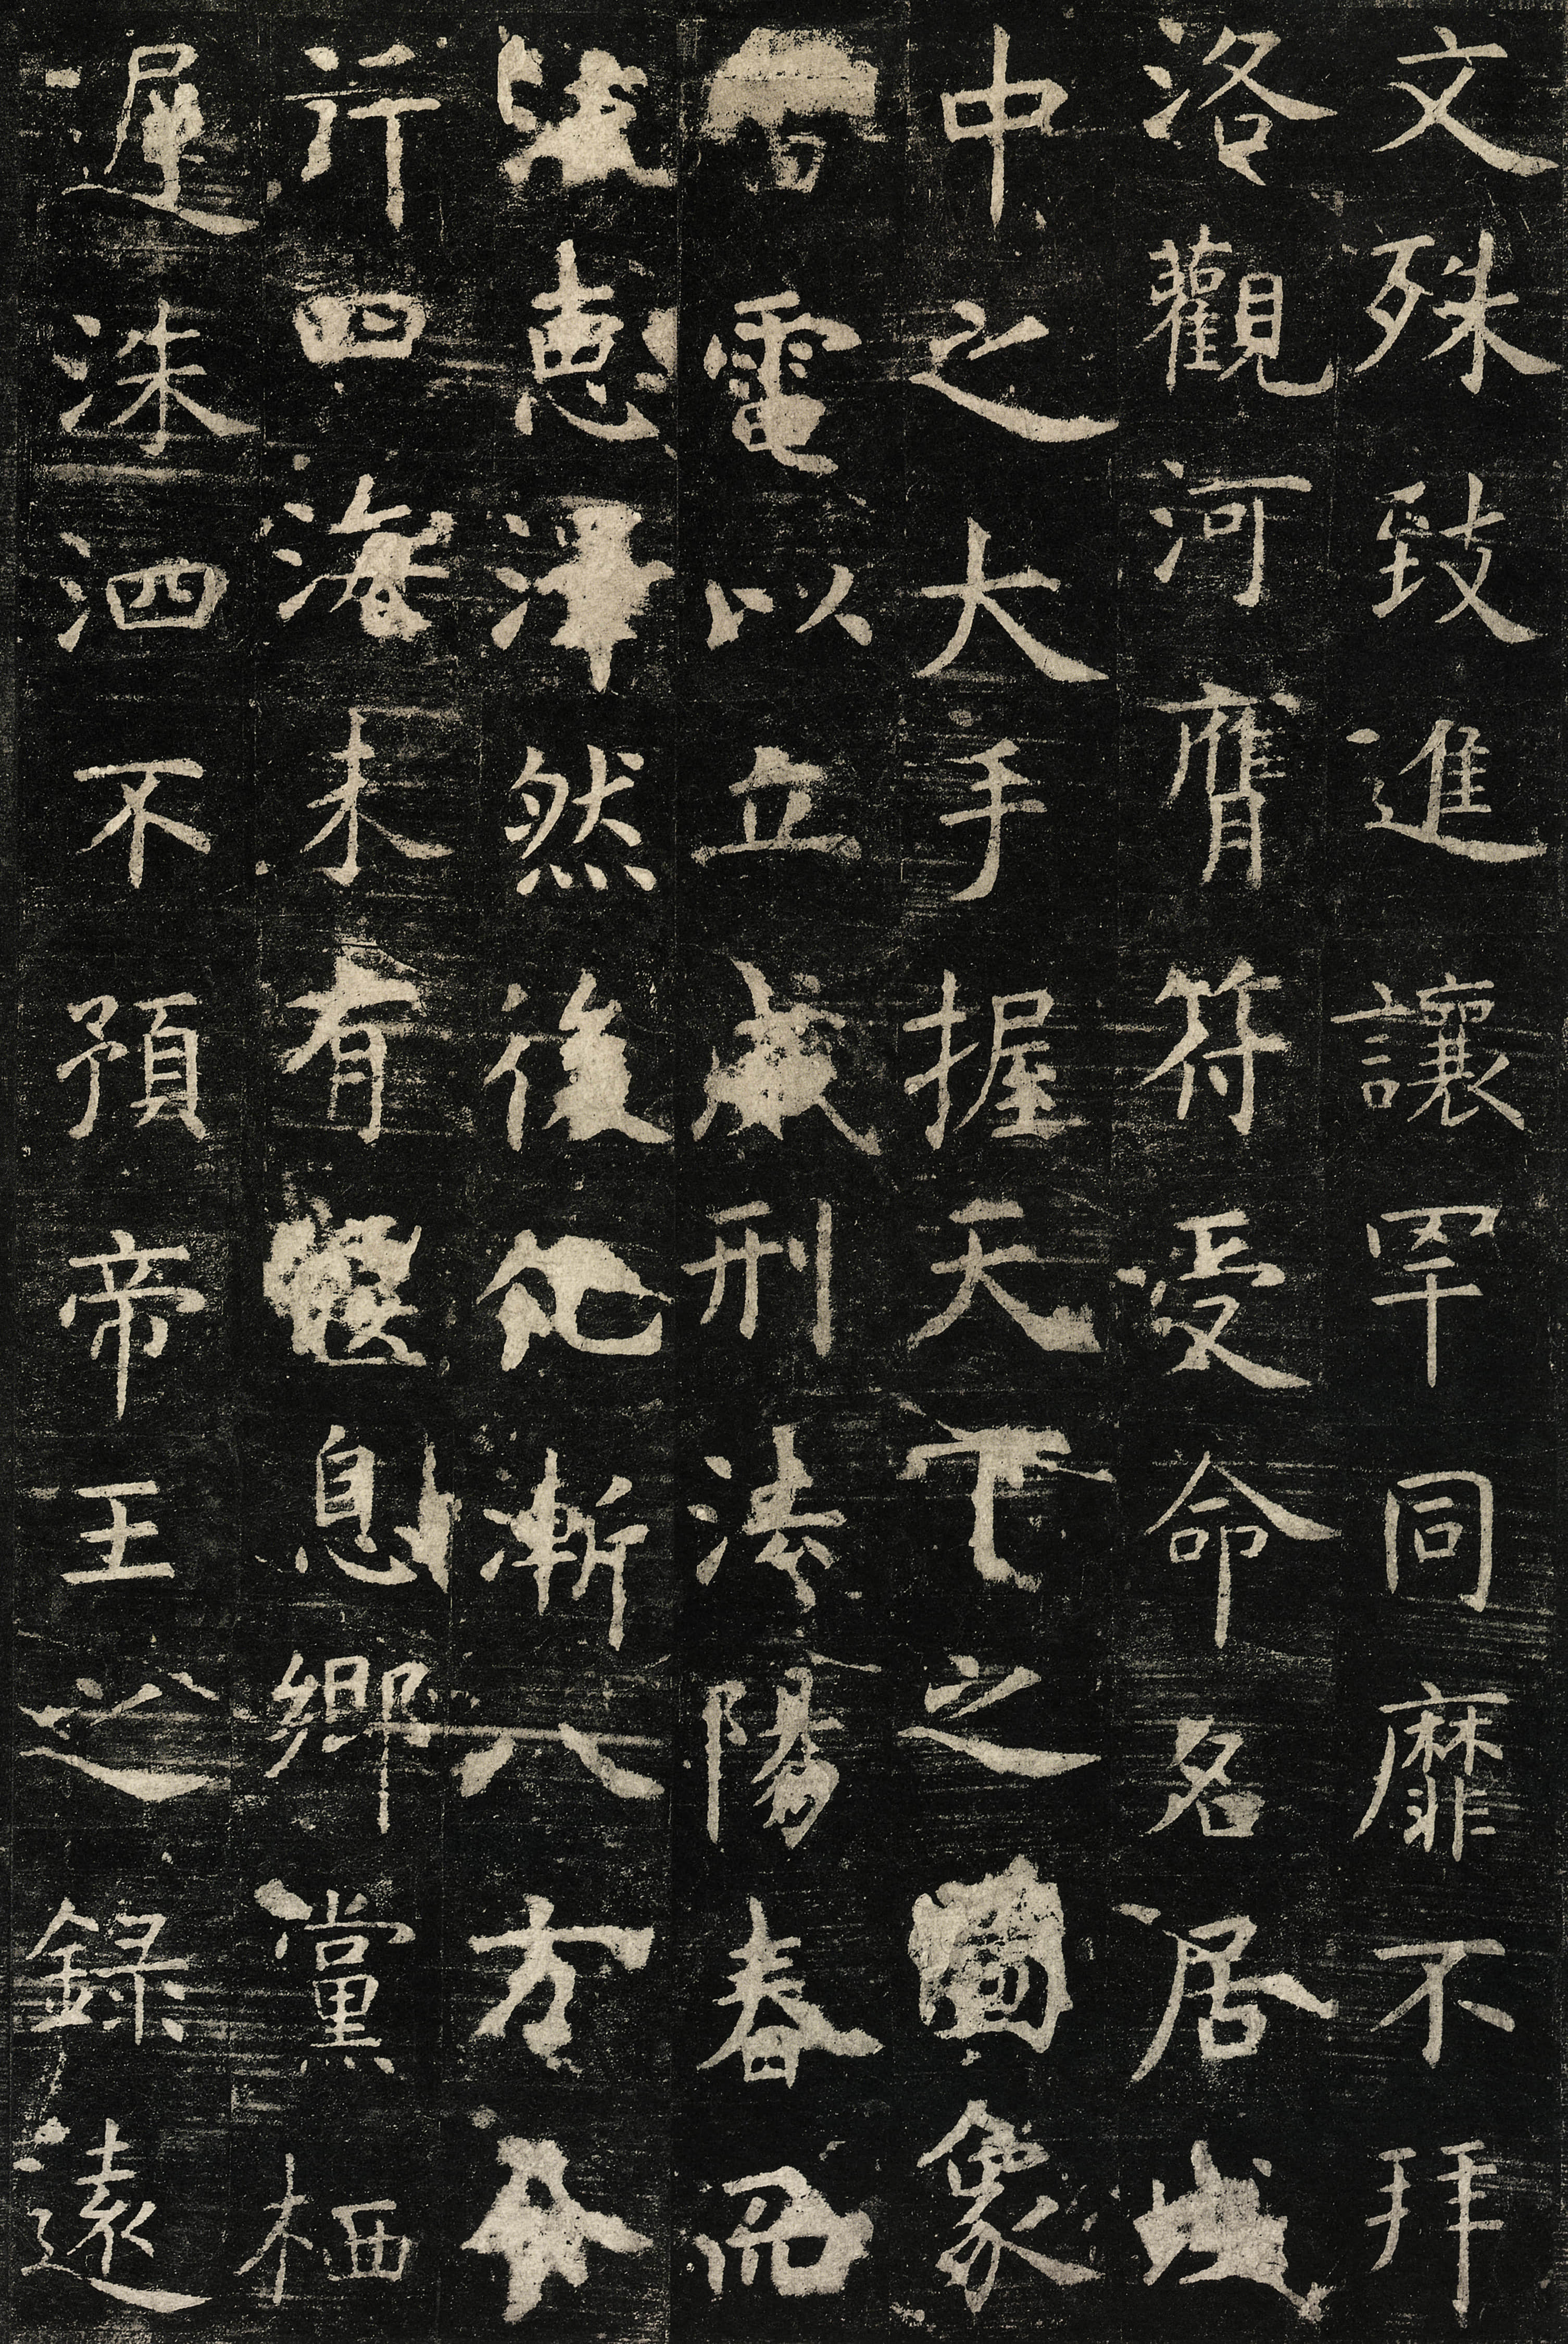 文殊致進讓罕同靡不拜
洛觀河膺符受命名居域
中之大手握天下之圖象
雷電以立威刑法陽春而
惠澤然後化漸八方令
行四海未有偃息鄉黨栖
遲洙泗不預帝王之錄遠